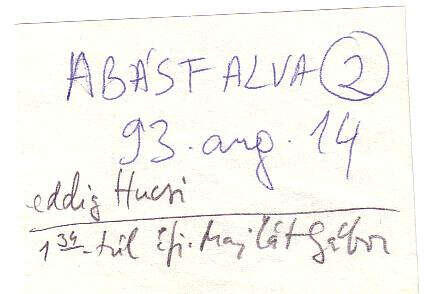 ABÁSFALVA ②
93. aug. 14
eddig Hucsi
1 34-től ifj. Majlát Gábor